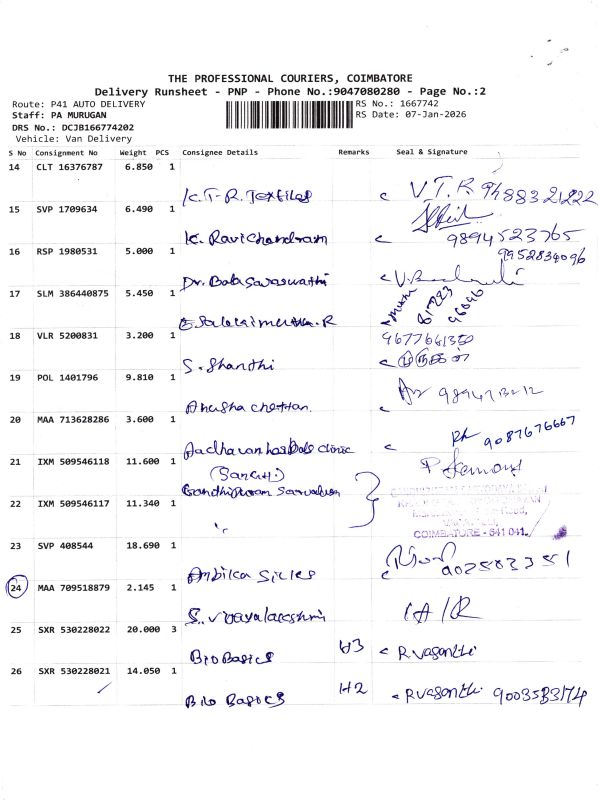 THE PROFESSIONAL COURIERS, COIMBATORE
Delivery Runsheet - PNP - Phone No.:9047080280 - Page No.:2
Route: P41 AUTO DELIVERY RS No.: 1667742
Staff: PA MURUGAN RS Date: 07-Jan-2026
DRS No.: DCJB166774202
Vehicle: Van Delivery
S No Consignment No Weight PCS Consignee Details Remarks Seal & Signature
14 CLT 16376787 6.850 1
K.T-R. Textiles V.T.R 9488321222
15 SVP 1709634 6.490 1
K. Ravichandram 9894523765
16 RSP 1980531 5.000 1 9952834096
Dr. Balasaraswathi
17 SLM 386440875 5.450 1
18 VLR 5200831 3.200 1
S. Shanthi
19 POL 1401796 9.810 1
Anusha chettan.
20 MAA 713628286 3.600 1
9087676667
21 IXM 509546118 11.600 1
Gandhipuram
22 IXM 509546117 11.340 1
COIMBATORE - 641 041.
23 SVP 408544 18.690 1
Ambika 9025833351
24 MAA 709518879 2.145 1
S. vijayalakshmi
25 SXR 530228022 20.000 3
Bio Basics H3 Rvasanthi
26 SXR 530228021 14.050 1
Bio Basics H2 Rvasanthi